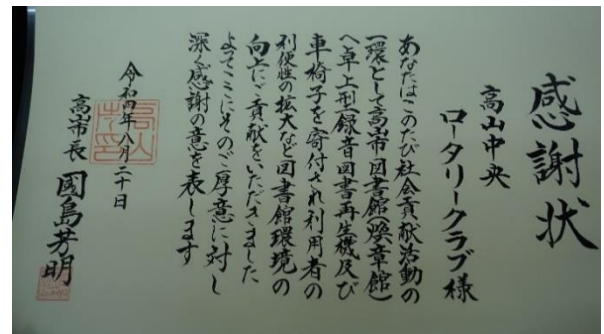 感謝状
高山中央
ロータリークラブ様
あなたはこのたび社会貢献活動の
一環として高山市図書館(煥章館)
へ卓上型録音図書再生機及び
車椅子を寄付され利用者の
利便性の拡大など図書館環境の
向上にご貢献をいただきました
よってここにそのご厚意に対し
深く感謝の意を表します
令和四年八月二十日
高山市長 國島芳明